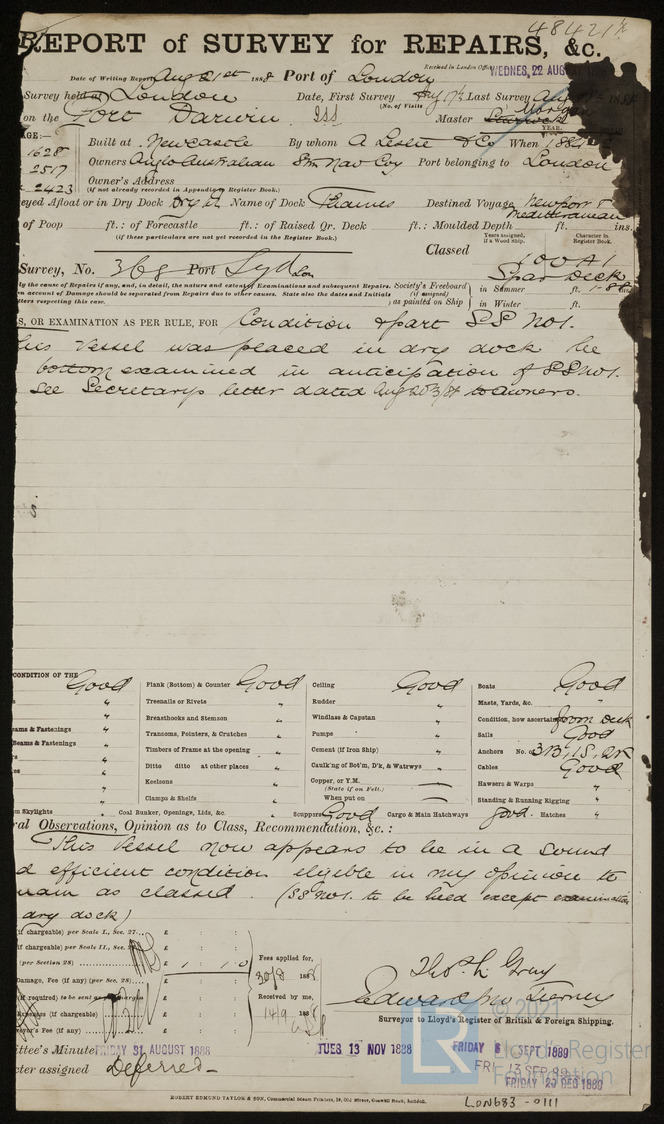 48421
REPORT of SURVEY for REPAIRS, &c.
Received in London Office WEDNES. 22 AUG
Date of Writing Report Aug 21st 1888 Port of London
Survey held at London Date, First Survey Aug 17 Last Survey Aug
(No. of Visits
on the Port Darwin ISS Master
YEAR.
AGE:—
1628 Built at Newcastle By whom A Leslie & Co When 1884
2517 Owners Anglo Australian Sm Nav Coy Port belonging to London
2423 Owner's Address
(if not already recorded in Appendix to Register Book.)
eyed Afloat or in Dry Dock Dry Dk Name of Dock Thames Destined Voyage Newport &
Mediterranean
of Poop ft.: of Forecastle ft.: of Raised Qr. Deck ft.: Moulded Depth ft. ins.
(if these particulars are not yet recorded in the Register Book.)
Years assigned, if a Wood Ship. Character in Register Book.
Classed 100A1
Survey, No. 368 Port Syd Lon Spar Deck
ly the cause of Repairs if any, and, in detail, the nature and extent of Examinations and subsequent Repairs. Society's Freeboard in Summer ft. 1-88 ins.
n account of Damage should be separated from Repairs due to other causes. State also the dates and Initials (if assigned)
tters respecting this case. as painted on Ship in Winter ft.
S, OR EXAMINATION AS PER RULE, FOR Condition & part SS No1.
his Vessel was placed in dry dock the
bottom examined in anticipation of SS No1.
See Secretarys letter dated Aug 20 3/88 to owners.
CONDITION OF THE Good Plank (Bottom) & Counter Good Ceiling Good Boats Good
s " Treenails or Rivets " Rudder " Masts, Yards, &c. "
" Breasthooks and Stemson " Windlass & Capstan " Condition, how ascertained from deck
eams & Fastenings " Transoms, Pointers, & Crutches " Pumps " Sails Good
Beams & Fastenings " Timbers of Frame at the opening " Cement (if Iron Ship) " Anchors No. of 3B, 1S, 2K
rs " Ditto ditto at other places " Caulk'ng of Bot'm, D'k, & Waterwys " Cables Good
" Keelsons " Copper, or Y.M. — Hawsers & Warps "
(State if on Felt.)
" Clamps & Shelfs " When put on — Standing & Running Rigging "
m Skylights " Coal Bunker, Openings, Lids, &c. " Scuppers Good Cargo & Main Hatchways Good. Hatches "
ral Observations, Opinion as to Class, Recommendation, &c.:
This Vessel now appears to be in a sound
d efficient condition eligible in my opinion to
main as classed. (SS No1. to be held except examination
dry dock)
if chargeable) per Scale I., Sec. 27... £ : :
if chargeable) per Scale II., Sec. 27 £ : :
(per Section 28) £ 1 : 1 : 0 Fees applied for,
Damage, Fee (if any) (per Sec. 28) £ : : 30/8 1888
(if required) to be sent as per margin £ : : Received by me,
Expenses (if chargeable) £ : : 14/9 1888
veyor's Fee (if any) £ : :
Thos. L Gray
Edward Jno Tierney
Surveyor to Lloyd's Register of British & Foreign Shipping.
ittee's Minute FRIDAY 31 AUGUST 1888 TUES 13 NOV 1888 FRIDAY 6 SEPT 1889
FRI 13 SEP 89
cter assigned Deferred — FRIDAY 20 DEC 1889
© 2021
LR
Lloyd's Register
Foundation
ROBERT EDMUND TAYLOR & SON, Commercial Steam Printers, 19, Old Street, Goswell Road, London.
LON683-0111